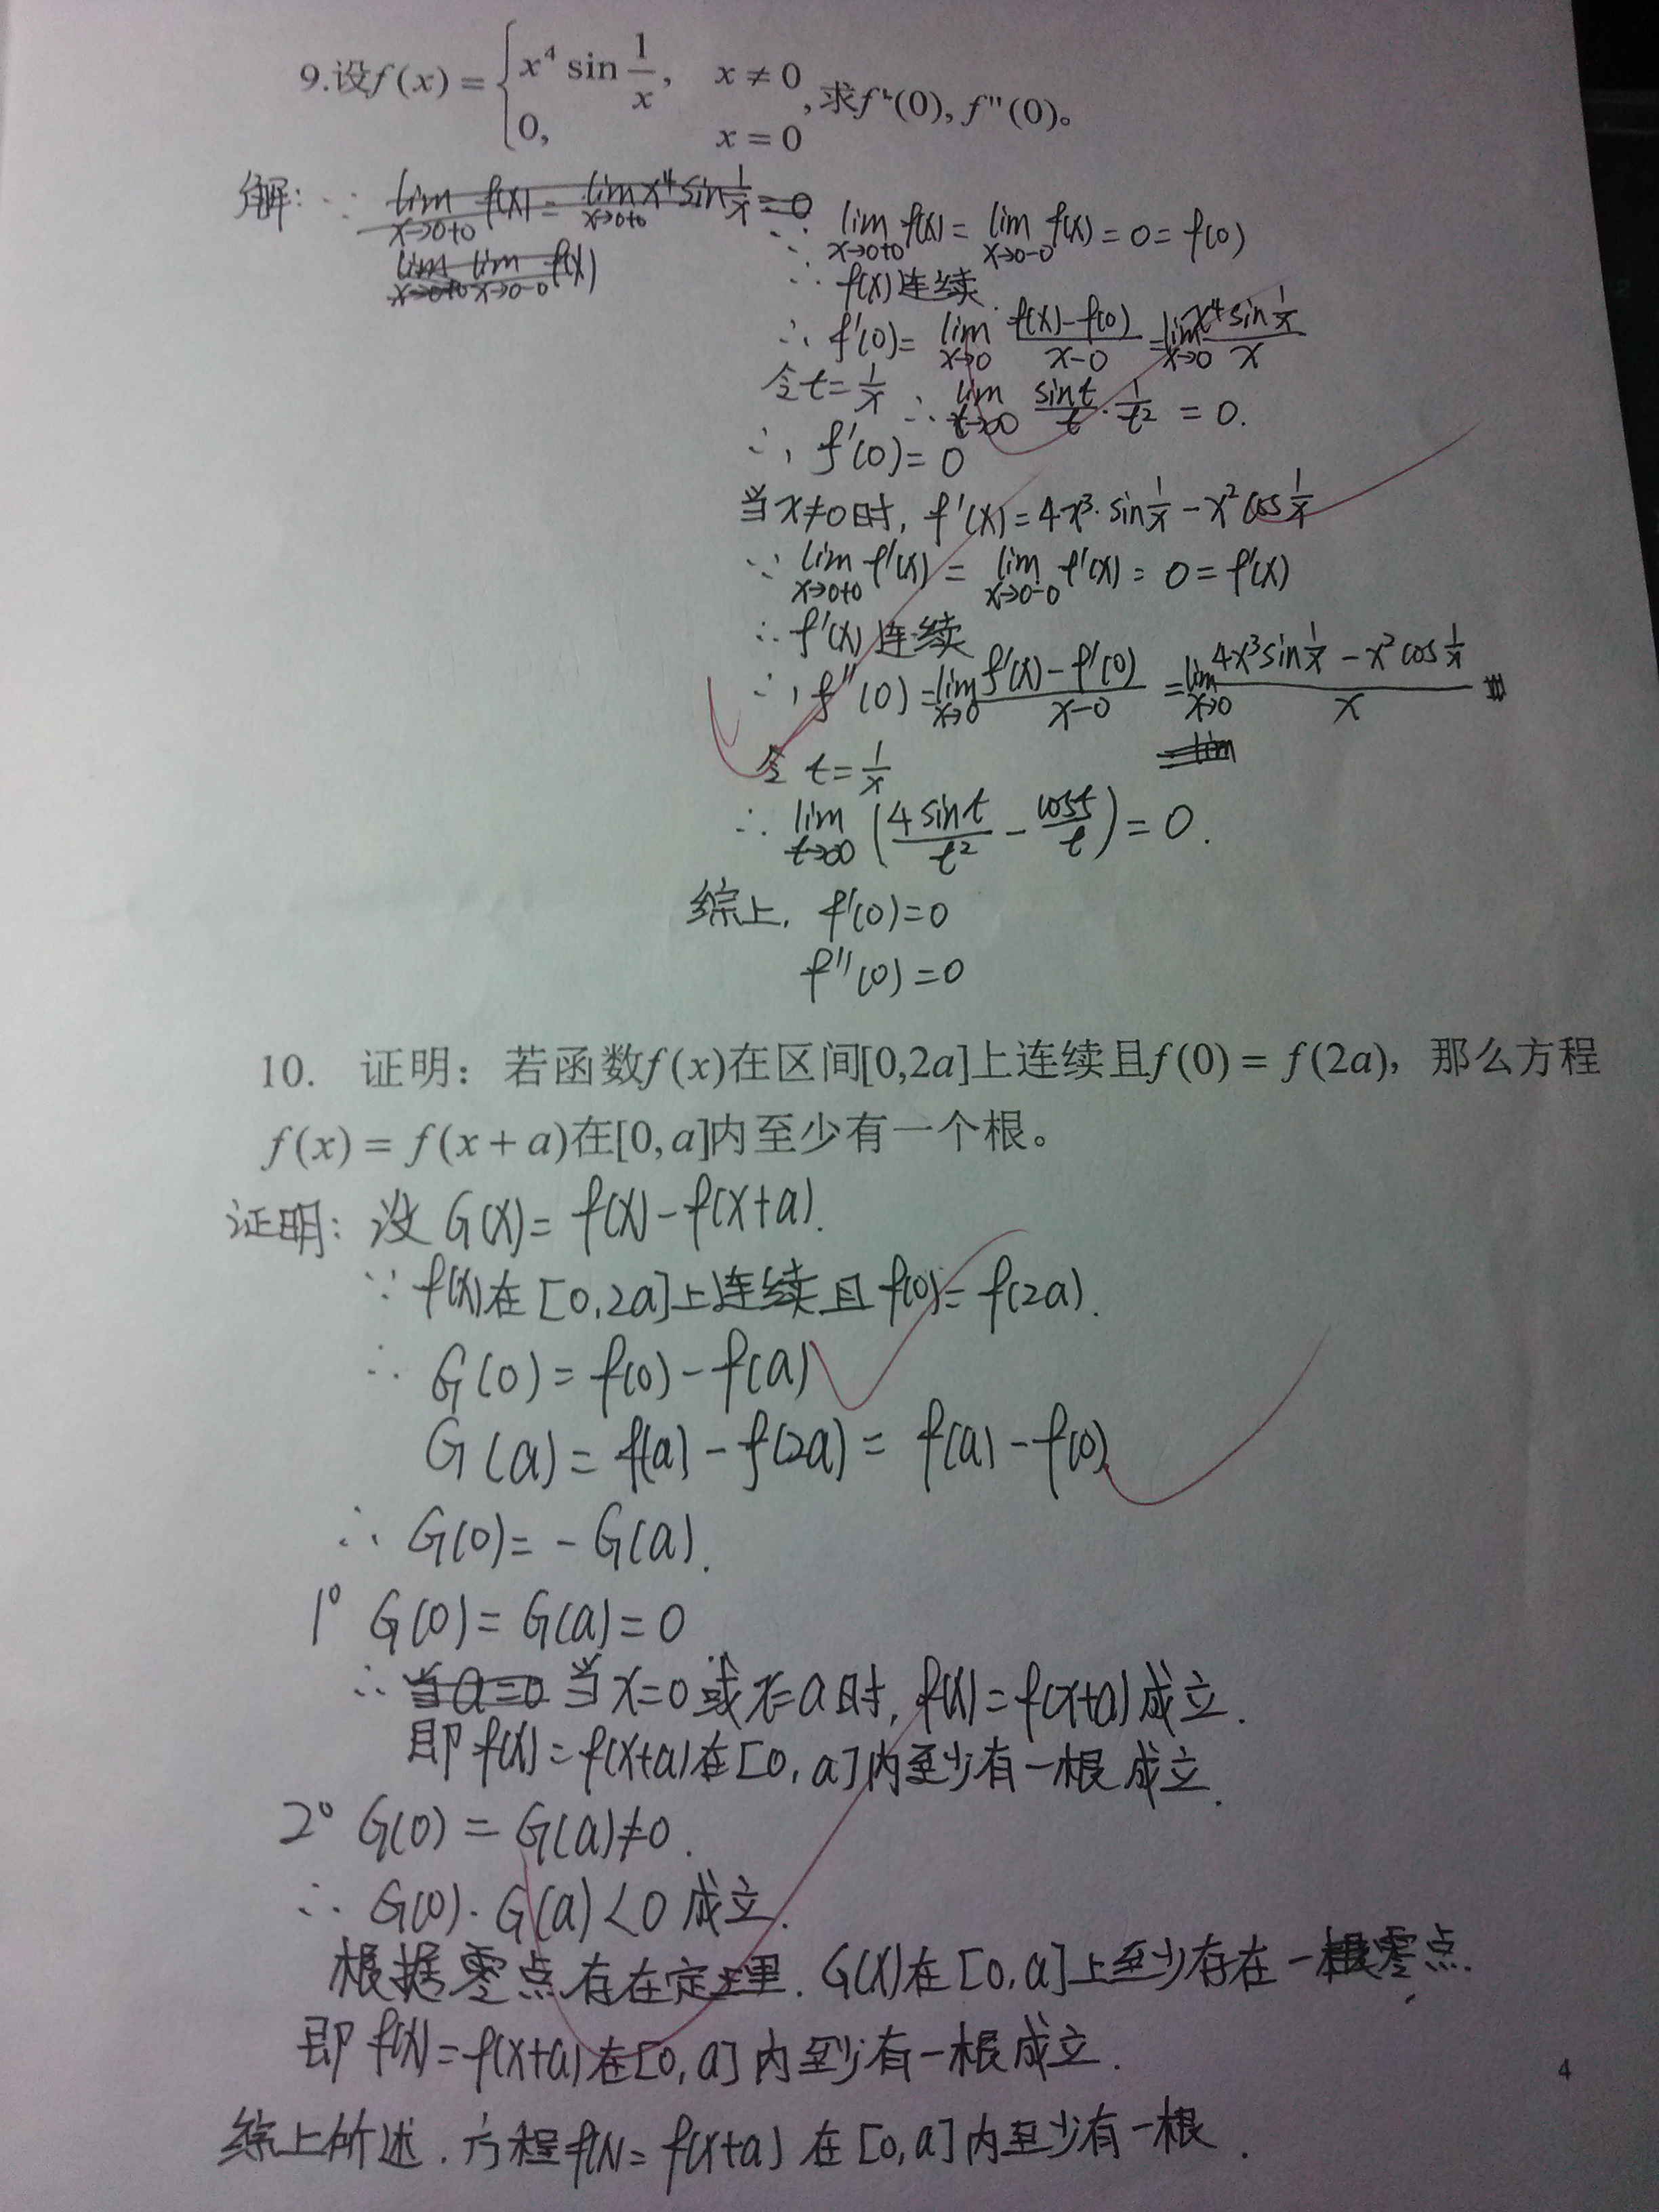 9.设f(x)={x⁴ sin 1/x, x≠0
0, x=0 ,求f'(0), f''(0)。
解: ∵ lim x→0+0 f(x) = lim x→0+0 x⁴ sin 1/x = 0
lim x→0+0 lim x→0-0 f(x)
∵ lim x→0+0 f(x) = lim x→0-0 f(x) = 0 = f(0)
∴ f(x)连续
∴ f'(0) = lim x→0 (f(x)-f(0))/(x-0) = lim x→0 (x⁴ sin 1/x)/x
令 t = 1/x ∴ lim t→∞ sint/t · 1/t² = 0.
∴, f'(0) = 0
当x≠0时, f'(x) = 4x³· sin 1/x - x² cos 1/x
∵ lim x→0+0 f'(x) = lim x→0-0 f'(x) = 0 = f'(x)
∴ f'(x) 连续
∴, f''(0) = lim x→0 (f'(x)-f'(0))/(x-0) = lim x→0 (4x³ sin 1/x - x² cos 1/x)/x
= lim
令 t = 1/x
∴ lim t→∞ (4 sint/t² - cost/t) = 0.
综上, f'(0)=0
f''(0)=0
10. 证明：若函数f(x)在区间[0,2a]上连续且f(0) = f(2a)，那么方程
f(x) = f(x+a)在[0,a]内至少有一个根。
证明: 设 G(x) = f(x) - f(x+a).
∵ f(x)在[0,2a]上连续且f(0) = f(2a).
∴ G(0) = f(0) - f(a)
G(a) = f(a) - f(2a) = f(a) - f(0)
∴ G(0) = - G(a).
1° G(0) = G(a) = 0
∴ 当a=0 当 x=0 或 x=a时, f(x) = f(x+a) 成立.
即 f(x) = f(x+a)在[0,a]内至少有一根成立.
2° G(0) = G(a)≠0.
∴ G(0)·G(a)<0 成立.
根据零点存在定理. G(x)在[0,a]上至少存在一零点.
即 f(x) = f(x+a)在[0,a]内至少有一根成立.
综上所述. 方程f(x) = f(x+a) 在[0,a]内至少有一根.
4